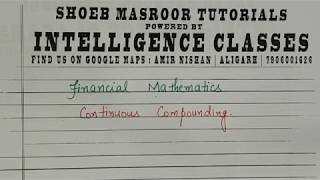 SHOEB MASROOR TUTORIALS
POWERED BY
INTELLIGENCE CLASSES
FIND US ON GOOGLE MAPS : AMIR NISHAN | ALIGARH | 7906001626
Financial Mathematics
Continuous Compounding.